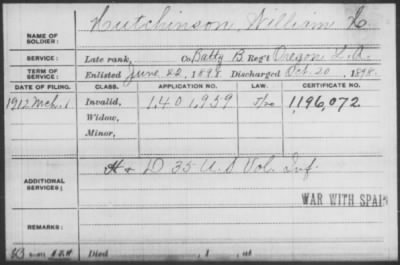 Hutchinson, William L
NAME OF SOLDIER:
SERVICE: Late rank, Co. Batty B. Reg't Oregon L. A.
TERM OF SERVICE: Enlisted June 22, 1898 Discharged Oct. 20, 1898.
DATE OF FILING. CLASS. APPLICATION NO. LAW. CERTIFICATE NO.
1912 Mch. 1 Invalid, 1,401,959 1,196,072
Widow,
Minor,
ADDITIONAL SERVICES: H & D 35 U S Vol. Inf.
WAR WITH SPAIN
REMARKS:
Died , 1 , at